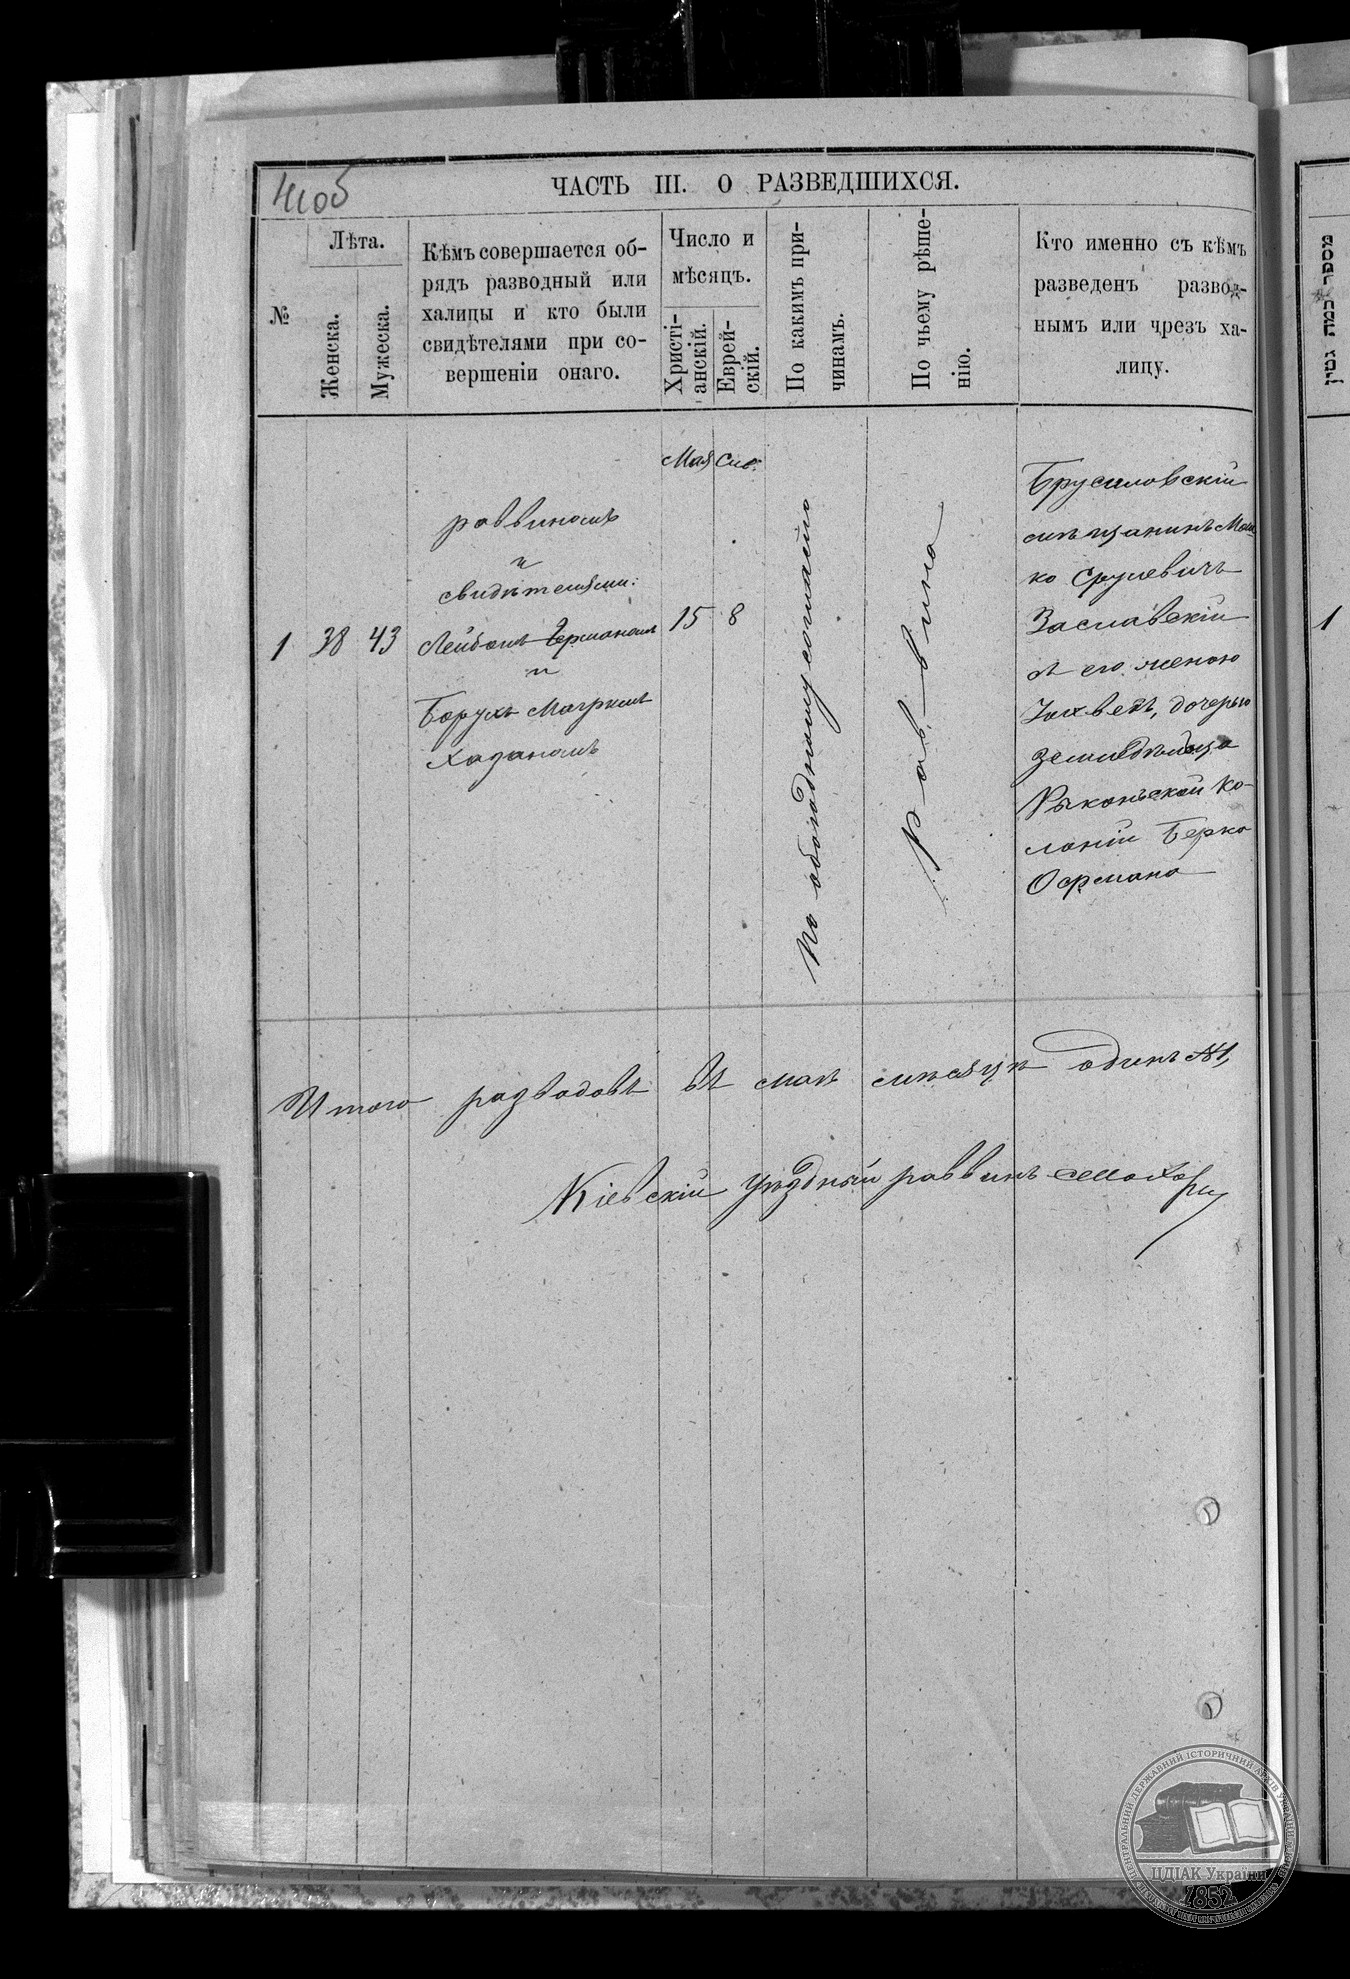 41об
ЧАСТЬ III. О РАЗВЕДШИХСЯ.
№
Лѣта.
Женска.
Мужеска.
Кѣмъ совершается об-
рядъ разводный или
халицы и кто были
свидѣтелями при со-
вершеніи онаго.
Число и
мѣсяцъ.
Христі-
анскій.
Еврей-
скій.
По какимъ при-
чинамъ.
По чьему рѣше-
нію.
Кто именно съ кѣмъ
разведенъ развод-
нымъ или чрезъ ха-
лицу.
מספר כמה גטין
Мая Сив.
1
38
43
раввиномъ
и
свидѣтелями:
Лейбомъ Германомъ
и
Борухъ
Хазаномъ
15
8
По обоюдному согласію
Раввина
Брусиловскій
мѣщанинъ Мош
ко Срулевичъ
Заславскій
съ его женою
Юхведъ, дочерью
земледѣльца
Рыканьской ко-
лоніи Берка
1
Итого разводовъ въ маѣ мѣсяцѣ одинъ №1,
Кіевскій уѣздный раввинъ
ЦЕНТРАЛЬНИЙ ДЕРЖАВНИЙ ІСТОРИЧНИЙ АРХІВ УКРАЇНИ
ЦДІАК України
1852